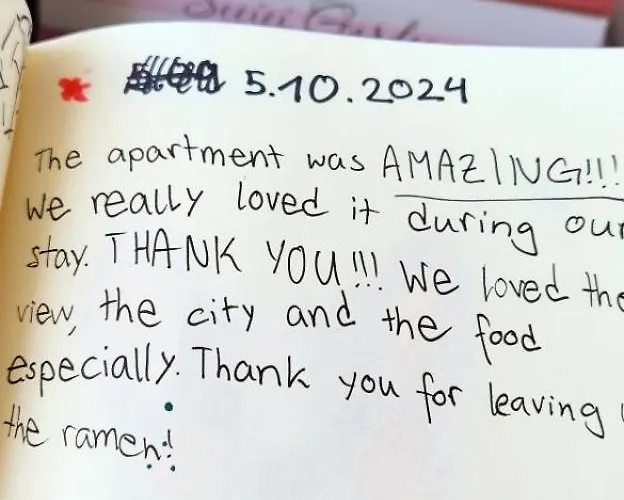 5.10.2024
The apartment was AMAZING!!!
we really loved it during our
stay. THANK YOU!!! We loved the
view, the city and the food
especially. Thank you for leaving
the ramen!